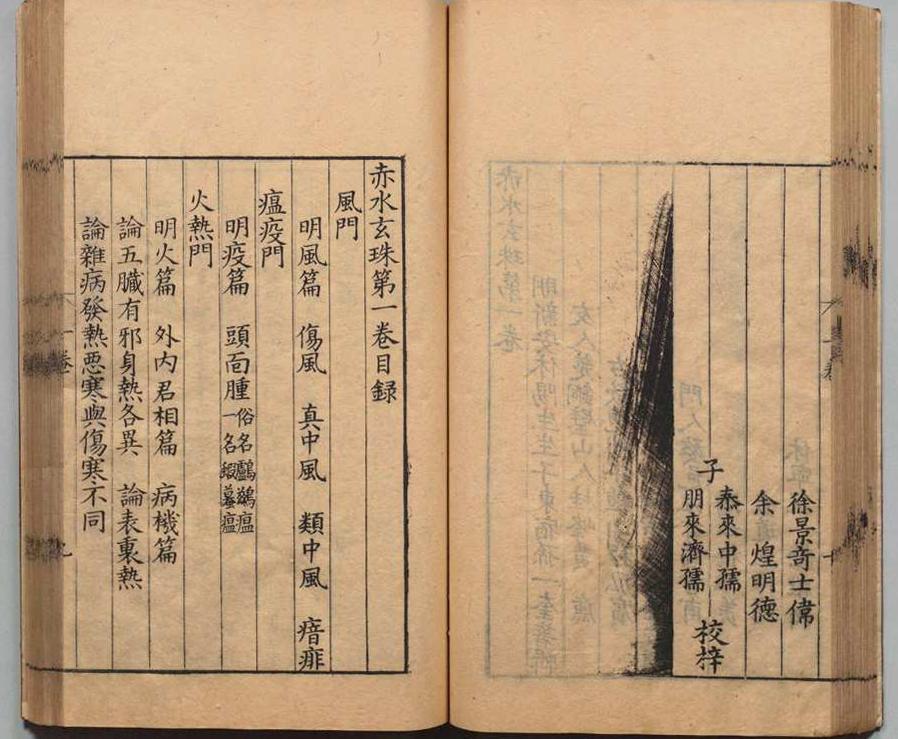 徐景奇士偉
余煌明德
子
泰來中孺
朋來濟孺
校梓
赤水玄珠第一卷目録
風門
明風篇 傷風 真中風 類中風 瘖痱
瘟疫門
明疫篇 頭面腫 俗名鸕鷀瘟 一名蝦蟇瘟
火熱門
明火篇 外内君相篇 病機篇
論五臟有邪身熱各異 論表裏熱
論雜病發熱悪寒與傷寒不同
一卷